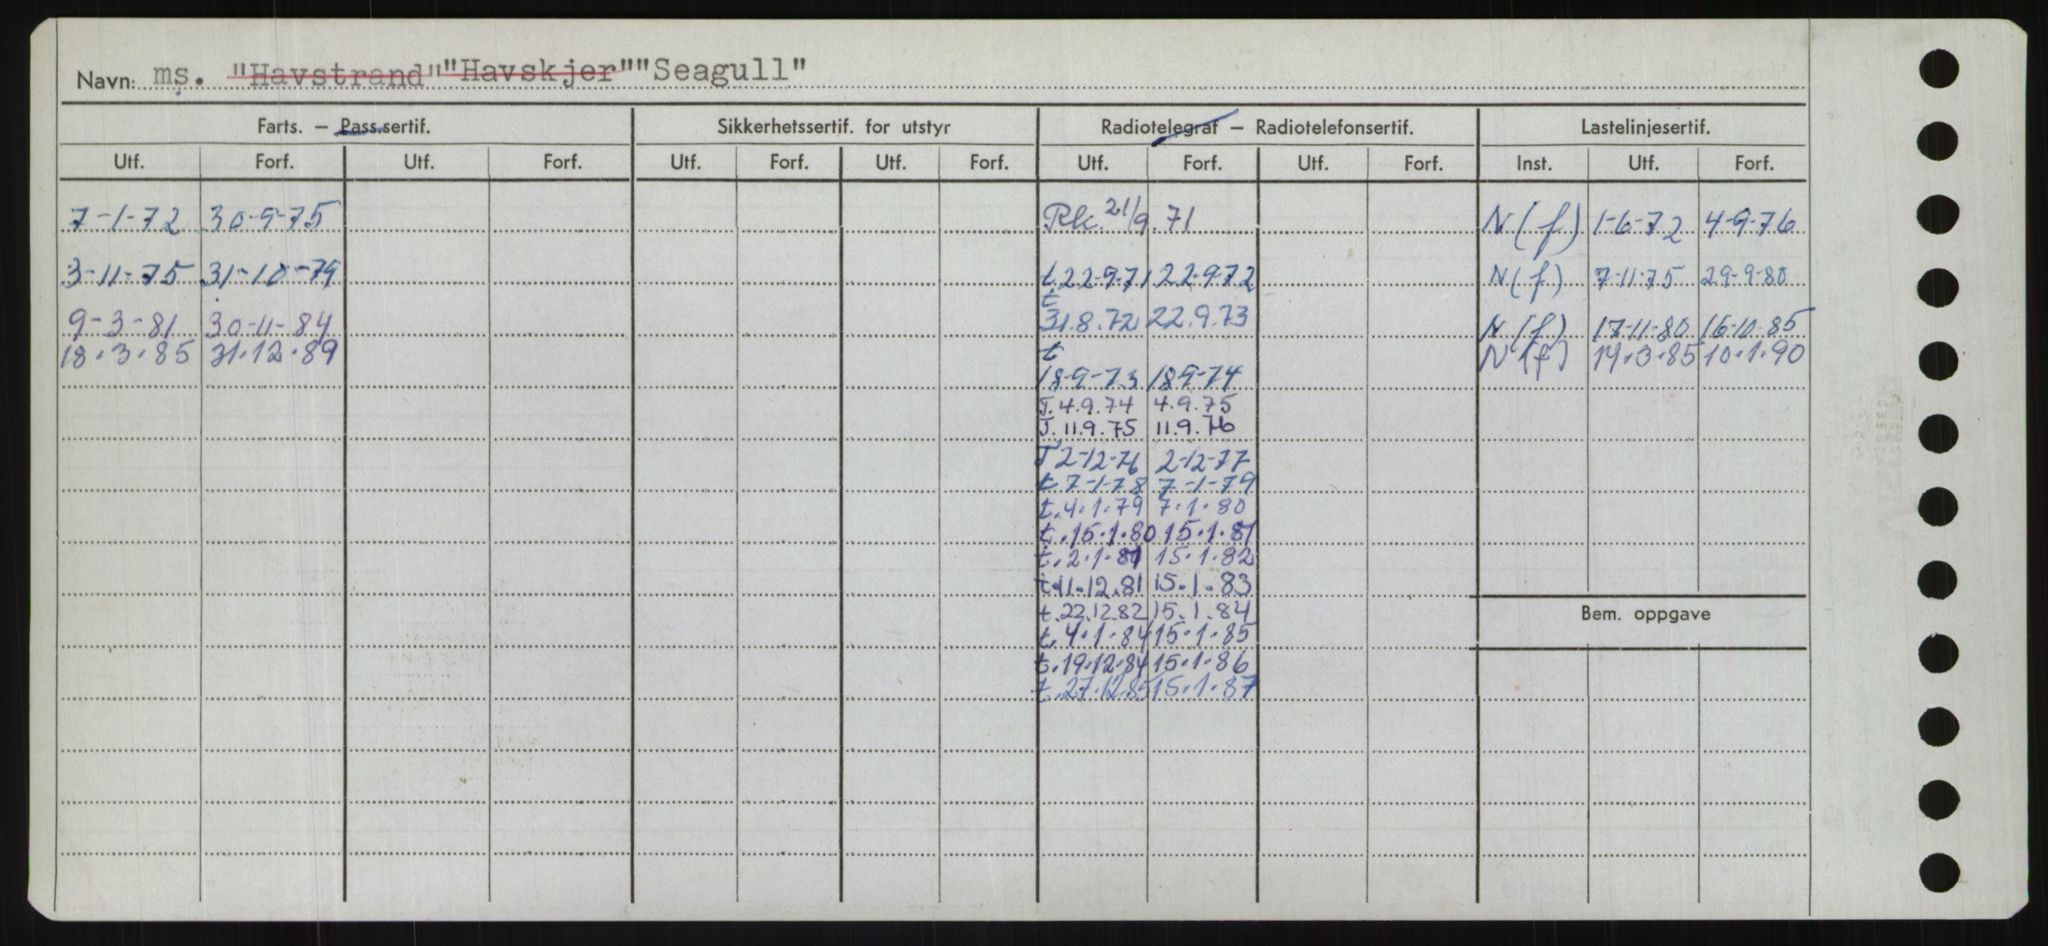 Navn: ms. "Havstrand" "Havskjer" "Seagull"
Farts. – Pass.sertif. Sikkerhetssertif. for utstyr Radiotelegraf – Radiotelefonsertif. Lastelinjesertif.
Utf. Forf. Utf. Forf. Utf. Forf. Utf. Forf. Utf. Forf. Utf. Forf. Inst. Utf. Forf.
7-1-72 30-9-75 Rk. 21/9.71 N(f) 1-6-72 4-9-76
3-11-75 31-10-79 t.22-9-71 22-9-72 N(f) 7-11-75 29-9-80
t
9-3-81 30-11-84 31.8.72 22.9.73 N(f) 17-11-80 16-10-85
18.3.85 31.12.89 t N(f) 14.3.85 10.1.90
18-9-73 18-9-74
T.4.9.74 4.9.75
T.11.9.75 11.9.76
T 2-12-76 2-12-77
t 7-1-78 7-1-79
t.4.1.79 7.1.80
t.15.1.80 15.1.81
t.2.1.81 15.1.82
t.11.12.81 15.1.83
t.22.12.82 15.1.84
Bem. oppgave
t.4.1.84 15.1.85
t.19.12.84 15.1.86
t.27.12.85 15.1.87